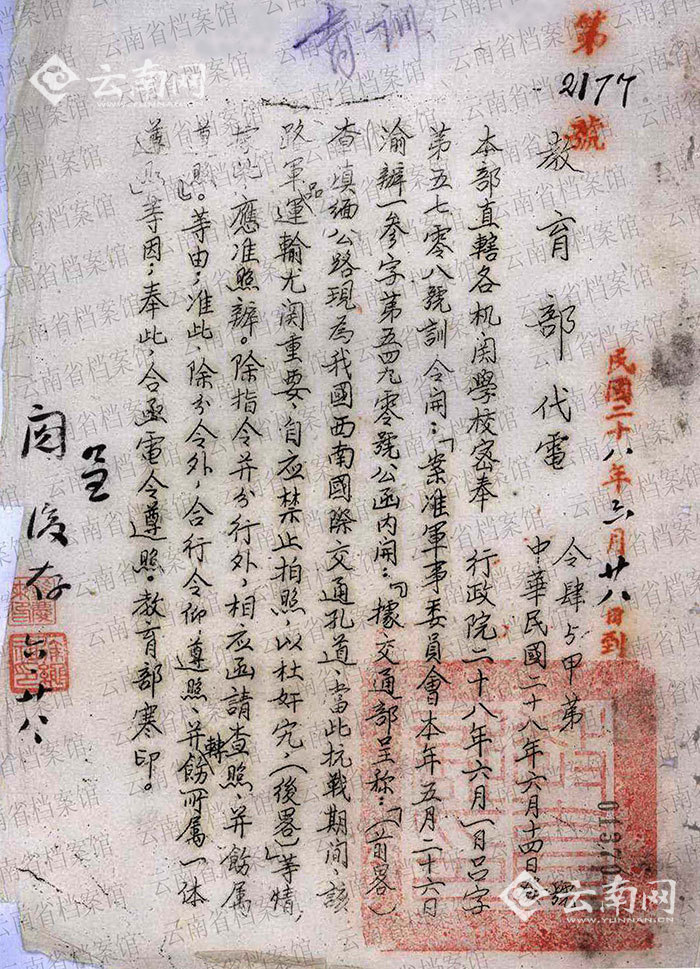 育训
第
2177
號
教育部代電
令肆占甲第
號
中華民國二十八年六月十四日
01570
民國二十八年六月廿八日到
本部直轄各机関學校密奉　行政院二十八年六月一日吕字
第五七零八號訓令開：「案准軍事委員會本年五月二十六日
渝辦一參字第五四九零號公函内開：『據交通部呈称：「（前畧）
查滇緬公路現為我國西南國際交通孔道、當此抗戰期间、該
路軍品運輸尤関重要、自应禁止拍照、以杜奸宄、（後畧）」等情、
應准照辦。除指令并分行外，相应函請查照、并飭属
遵照』。等由；准此，除分令外，合行令仰遵照、并轉飭所属一体
遵照」等因；奉此，合亟電令遵照。教育部寒印。
呈
閱後存
六、廿八
云南网
云南网
WWW.YUNNAN.CN
云南省档案馆